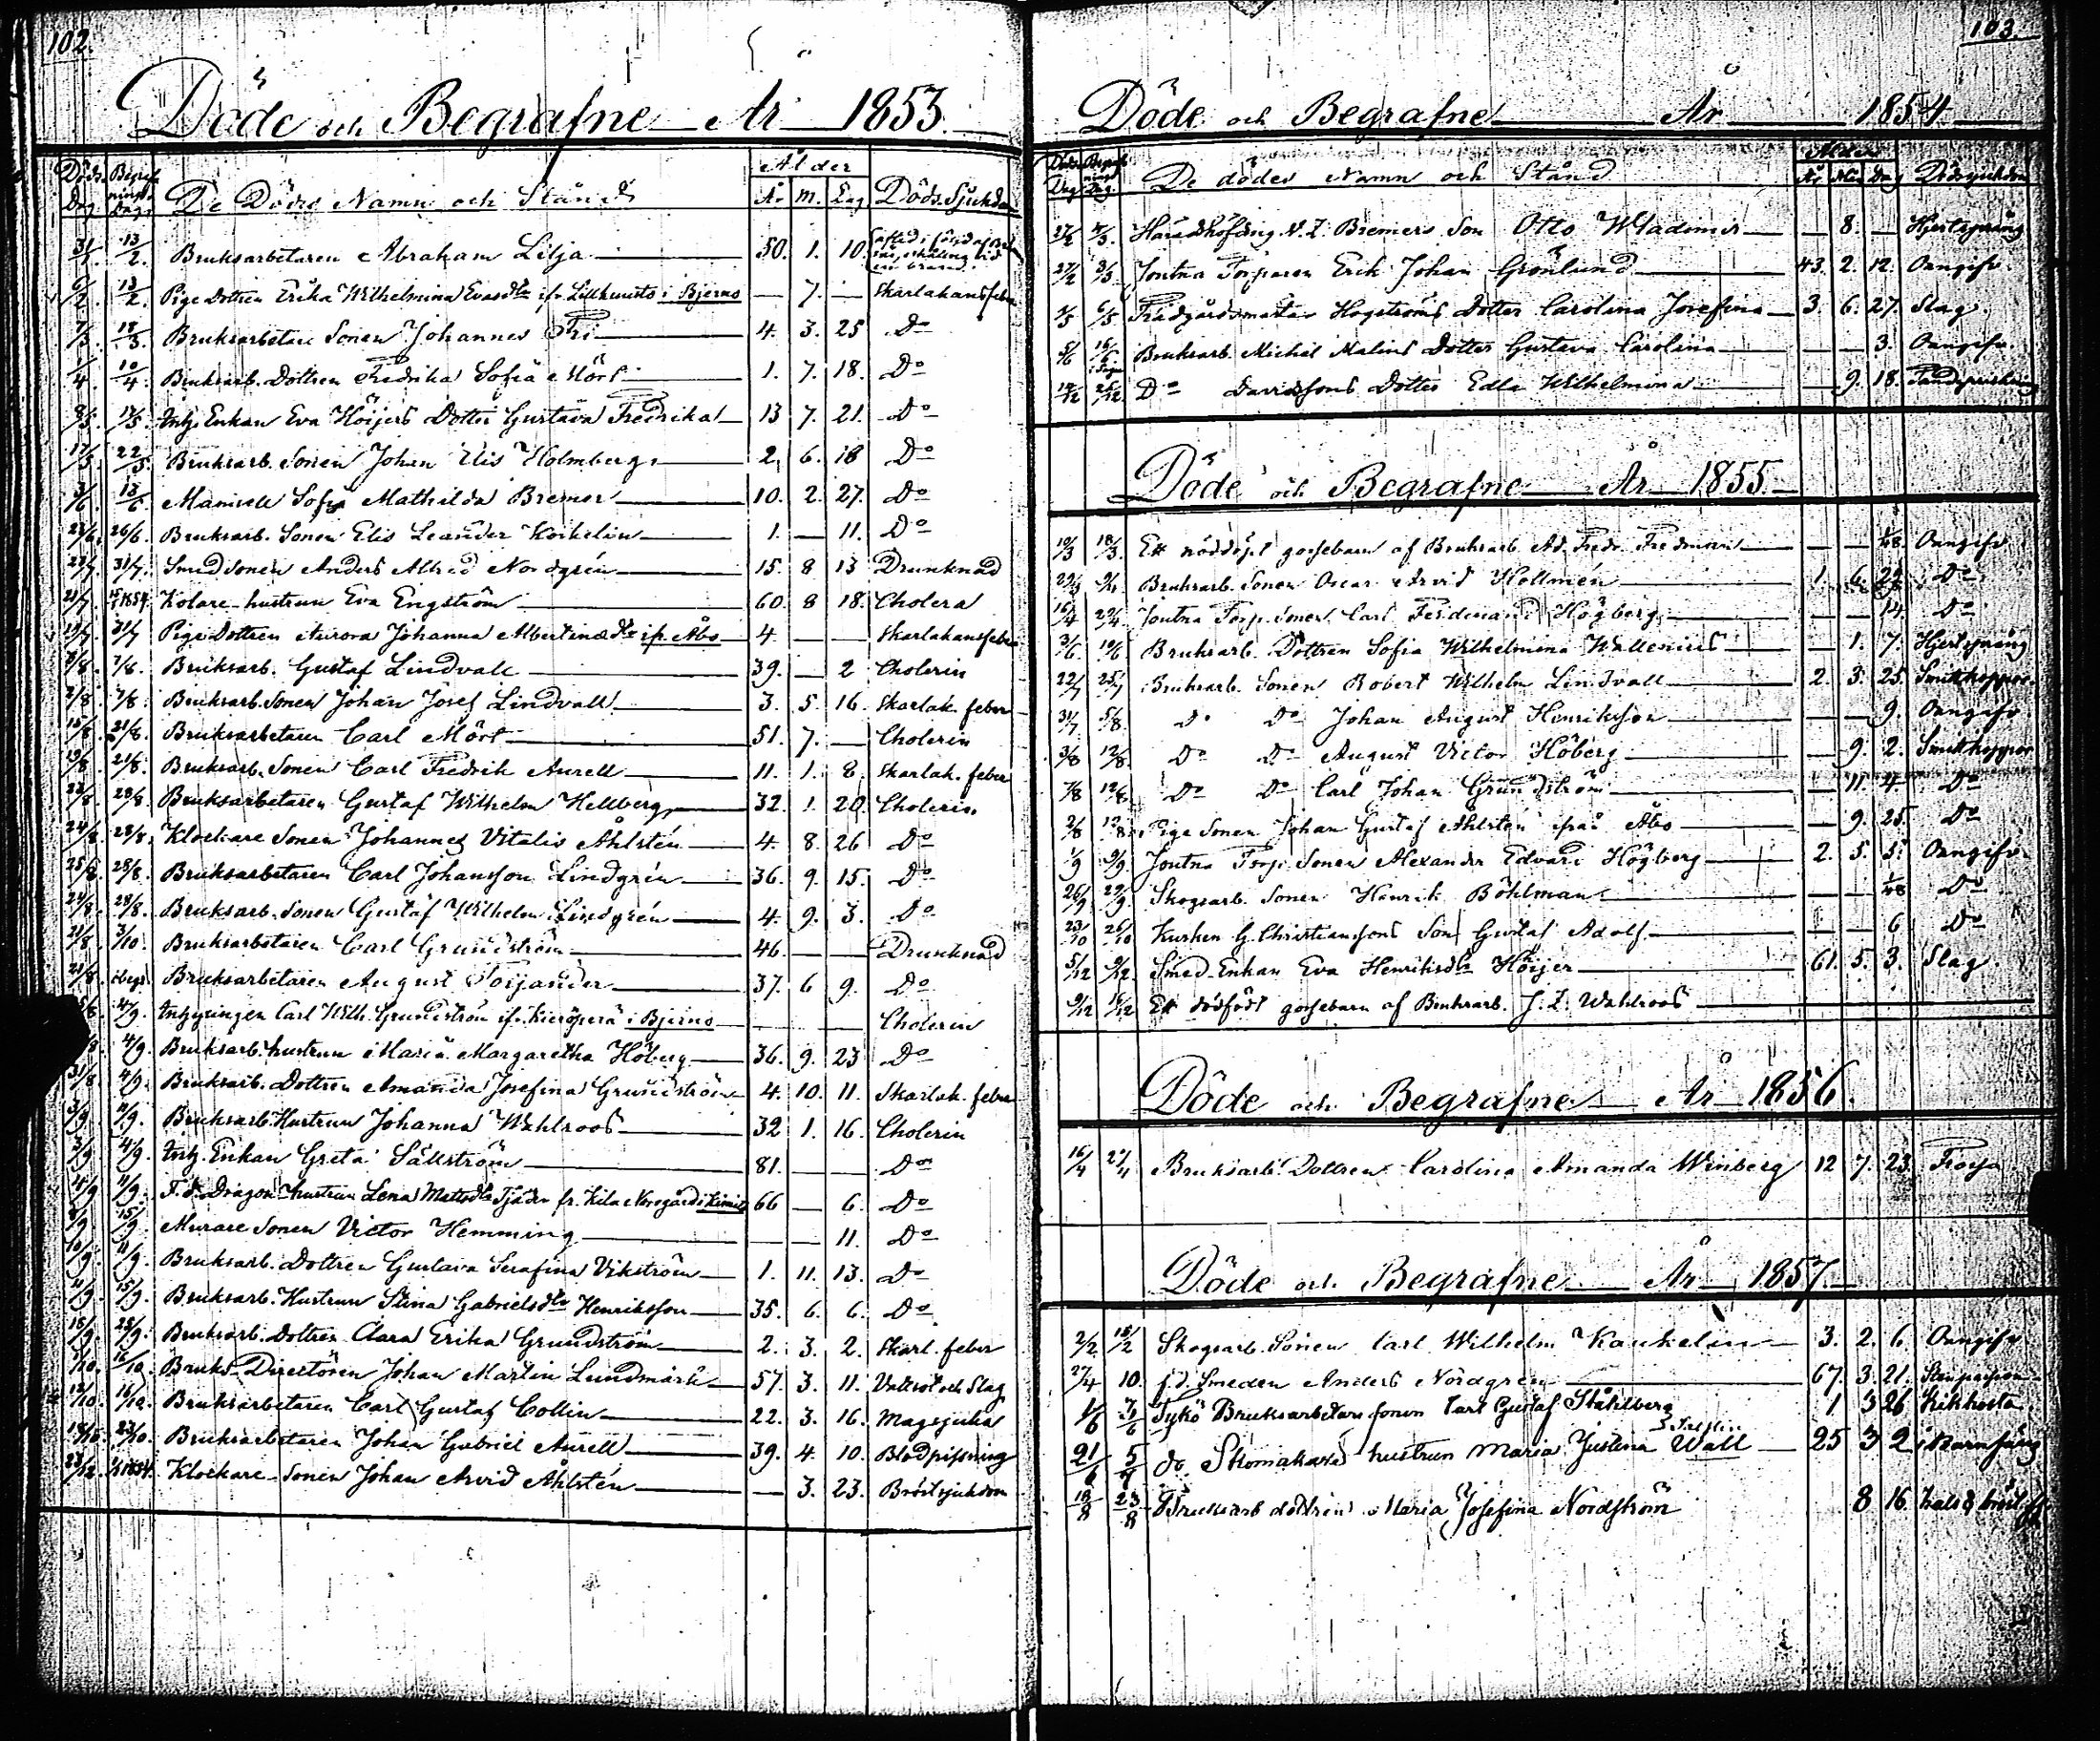 102.
Döde och Begrafne År 1853.
Döds Dag Begrafnings Dag De Dödes Namn och Stånd Ålder År m. Dag Döds Sjukdom
31/1. 13/2. Bruksarbetaren Abraham Lilja 50. 1. 10.
6/2. 13/2. Pige Dottren Erika Wilhelmina Evasdtr ifr. i Bjerno — 7. — Skarlakansfeber
7/3. 18/3. Bruksarbetare Sonen Johannes Fri 4. 3. 25 Do
1/4. 10/4. Bruksarb. Dottren Fredrika Sofia Mört 1. 7. 18. Do
8/5. 15/5. Inhy. Enkan Eva Höijers Dotter Gustava Fredrika 13 7. 21. Do
17/5. 22/5. Bruksarb. Sonen Johan Elis Holmberg 2. 6. 18 Do
3/6. 13/6. Mamsell Sofia Mathilda Bremer 10. 2. 27. Do
23/6. 26/6. Bruksarb. Sonen Elis Leander Koskelin 1. — 11. Do
31/7. Smedsonen Anders Alfred Nordgrén 15. 8 13 Drunknad
21/7 1854 Kolare hustrun Eva Engström 60. 8 18. Cholera
31/7 Pige Dottren Aurora Johanna Albertinædtr ifr. Åbo 4. — — Skarlakansfeber
7/8. Bruksarb. Gustaf Lindvall 39. — 2 Cholerin
2/8. 7/8. Bruksarb. Sonen Johan Josef Lindvall 3. 5. 16. Skarlak. feber
15/8. 21/8. Bruksarbetaren Carl Mört 51. 7. — Cholerin
19/8. 21/8. Bruksarb. Sonen Carl Fredrik Aurell 11. 1. 8. Skarlak. feber
28/8. Bruksarbetaren Gustaf Wilhelm Hellberg 32. 1. 20. Cholerin
24/8. 28/8. Klockare Sonen Johannes Vitalis Åhlstén 4. 8. 26 Do
25/8. 28/8. Bruksarbetaren Carl Johansson Lindgrén 36. 9. 15. Do
28/8. Bruksarb. Sonen Gustaf Wilhelm Lindgrén 4. 9. 3. Do
21/8. 3/10. Bruksarbetaren Carl Grundström 46. — — Drunknad
21/8. Bruksarbetaren August Toijander 37. 6 9. Do
4/9. Inhysingen Carl Wilh. Grundström ifr. i Bjerno — — — Cholerin
4/9. Bruksarb. hustrun Maria Margaretha Höberg 36. 9. 23 Do
31/8. 4/9. Bruksarb. Dottren Amanda Josefina Grundström 4. 10. 11. Skarlak. feber
11/9. Bruksarb. Hustrun Johanna Wahlroos 32 1. 16. Cholerin
3/9 4/9. Inhy. Enkan Greta Sällström 81. — — Do
11/9. F. d. Dragon hustrun Lena Mattsdtr Tjäder fr. Kila Norrgård i Kimito 66 — 6. Do
15/9. Murare Sonen Victor Hemming — — 11. Do
10/9. 11/9. Bruksarb. Dottren Gustava Serafina Vikström 1. 11. 13. Do
11/9. 15/9. Bruksarb. Hustrun Stina Gabrielsdtr Henriksson 35. 6. 6. Do
15/9. 25/9. Bruksarb. Dottren Clara Erika Grundström 2. 3. 2. Skarl. feber
16/10. Bruks-Directören Johan Martin Lundmark 57. 3. 11. Vattsot och Slag
12/10. 16/10. Bruksarbetaren Carl Gustaf Collin 22. 3. 16. Magsjuka
23/10. Bruksarbetaren Johan Gabriel Aurell 39. 4. 10. Blodpissning
23/12 1/1 1854. Klockare-Sonen Johan Arvid Åhlstén — 3. 23. Bröstsjukdom
103.
Döde och Begrafne År 1854
Döds Dag Begrafnings Dag De dödes Namn och Stånd Ålder År Mån Dag Dödssjukdom
27/2 Häradshöfding N. L. Bremers Son Otto Wladimir — 8. — Hjertsprång
27/2 5/3. Jontna Torparen Erik Johan Grönlund 43. 2. 12. Oangifv.
2/5 6/5. Trädgårdsmästar Hogströms Dotter Carolina Josefina 3. 6. 27. Slag.
5/6 Bruksarb. Michel Malins Dotter Gustava Carolina — — 3. Oangifv.
19/12 26/12. Do Davidssons Dotter Edla Wilhelmina — 9. 18. Tandsprickning
Döde och Begrafne År 1855
10/3 18/3. Ett nöddöpt gossebarn af Bruksarb. Ad. Fredr. Fredman — — 1/48 Oangifv
Bruksarb. Sonen Oscar Arvid Hollmén 1. 6. Do
16/4 29/4. Jontna Torp. Sonen Carl Ferdinand Högberg — — 14. Do
3/6. 10/6 Bruksarb. Dottren Sofia Wilhelmina Wallenius — 1. 7. Hjertsprång
22/7 25/7 Bruksarb. Sonen Robert Wilhelm Lindvall 2. 3. 25. Smittkoppor.
31/7 5/8. Do Do Johan August Henriksson — — 9. Oangifv
3/8 12/8. Do Do August Victor Höberg — 9. 2. Smittkoppor
7/8 12/8. Do Do Carl Johan Grundström — 11. 4 Do
2/8 12/8. Pige Sonen Johan Gustaf Ahlsten ifrån Åbo — 9. 25. Do
1/9 9/9. Jontna Torp. Sonen Alexander Edvard Högberg 2. 5. 5. Oangifv.
26/9 29/9. Skogsarb. Sonen Henrik Böhlman — — 1/48 Do
23/10 26/10 Kusken G. Christianssons Son Gustaf Adolf — — 6 Do
5/12 9/12. Smed-Enkan Eva Henriksdtr Höijer 61. 5. 3. Slag.
9/12 16/12. Ett dödfödt gossebarn af Bruksarb. J. L. Wahlroos
Döde och Begrafne År 1856.
16/4 27/4 Bruksarb. Dottren Carolina Amanda Winberg 12 7. 23. Frossa
Döde och Begrafne År 1857.
2/2. 15/2 Skogsarb. Sonen Carl Wilhelm Kaukelin 3. 2. 6 Oangifv
27/4 10. f. d. Smeden Anders Nordgren 67. 3. 21.
1/6 7/6 Tykö Bruksarbetare sonen Carl Gustaf Ståhlberg 1 3 26 Kikhosta
21/6 5/7 do Skomakare hustrun Maria Justina Wall 25 3 2 Barnsäng
18/8 23/8 Bruksarb dottren Maria Josefina Nordström 8 16